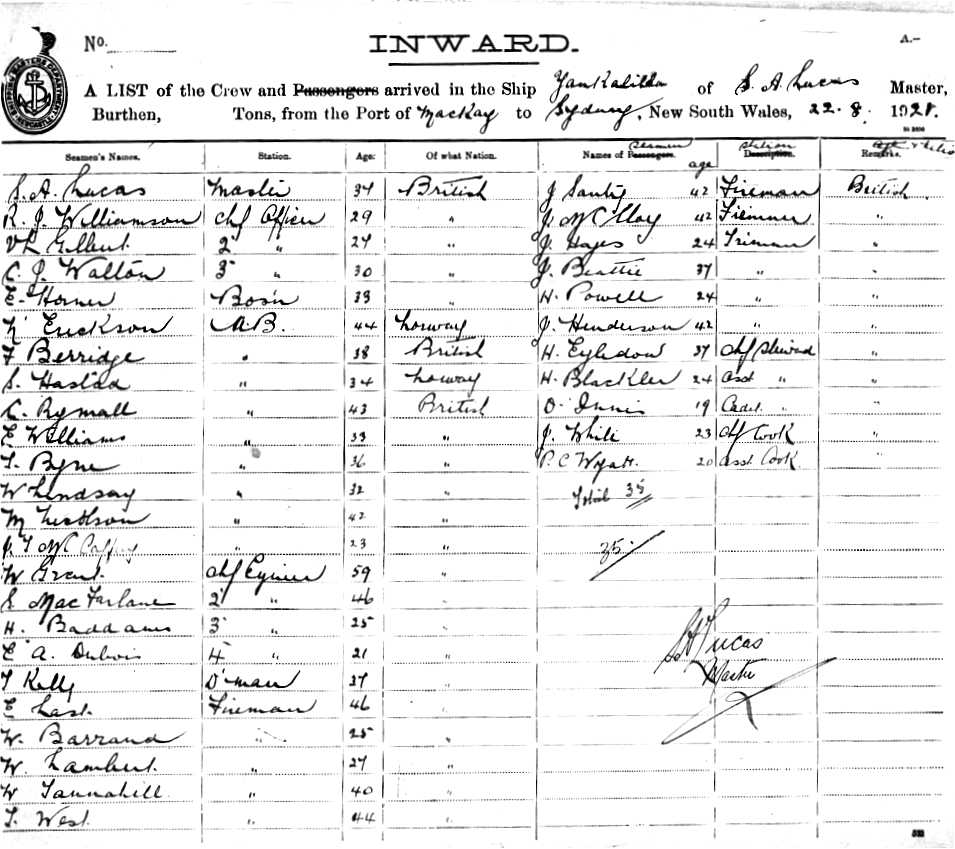 No. INWARD. A.-
A LIST of the Crew and Passengers arrived in the Ship Yankalilla of S. A. Lucas Master,
Burthen, Tons, from the Port of Mackay to Sydney, New South Wales, 22.8.1921.
Seamen's Names. Station. Age: Of what Nation. Names of Passengers. Seamen age Description. Station Remarks.
S. A. Lucas Master 34 British J Santy 42 Fireman British
R. J. Williamson Chf Officer 29 " J. McCloy 42 Firemen "
V L Gilbert 2 " 27 " J. Hayes 24 Trimmer "
C. J. Walton 3 " 30 " J. Beattie 37 " "
E. Horner Bosn 33 " H. Powell 24 " "
N Erickson A.B. 44 Norway J. Henderson 42 " "
F Berridge " 38 British H. 37 Chf Steward "
S. Hastad " 34 Norway H. Blackler 24 asst " "
C. Rymall " 43 British O. Innis 19 Cadet " "
E. Williams " 33 " J. White 23 Chf Cook "
T. Byrne " 36 " P. C Wyatt. 20 asst Cook "
W Lindsay " 32 " Total 35
M " 42 "
J. T McCaffrey " 23 " 35
W Grant. Chf Engineer 59 "
S MacFarlane 2 " 46 "
H. Baddams 3 " 25 "
E A. Dubois 4 " 21 " S A Lucas
T Kelly D'man 37 " Master
E Last. Fireman 46 "
W. Barrand " 25 "
W. Lambert. " 27 "
W Tannahill " 40 "
T. West " 44 "